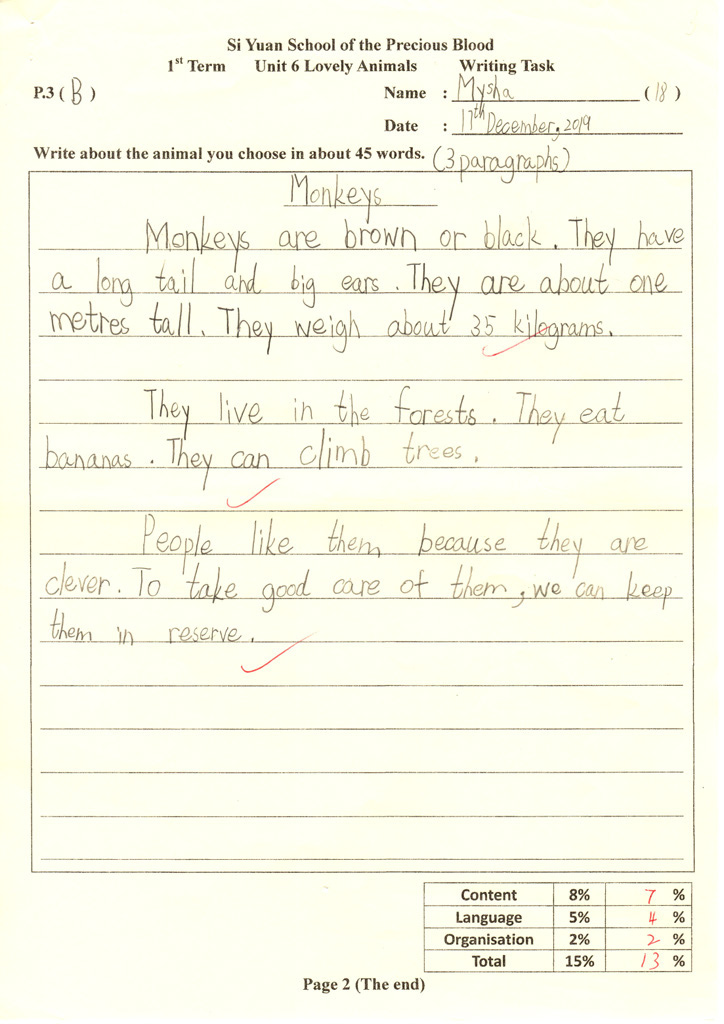 Si Yuan School of the Precious Blood
1st Term Unit 6 Lovely Animals Writing Task
P.3 ( B ) Name : Mysha ( 18 )
Date : 17th December, 2019
Write about the animal you choose in about 45 words. (3 paragraphs)
Monkeys
Monkeys are brown or black. They have
a long tail and big ears. They are about one
metres tall. They weigh about 35 kilograms.
They live in the forests. They eat
bananas. They can climb trees.
People like them because they are
clever. To take good care of them, we can keep
them in reserve.
Content 8% 7 %
Language 5% 4 %
Organisation 2% 2 %
Total 15% 13 %
Page 2 (The end)